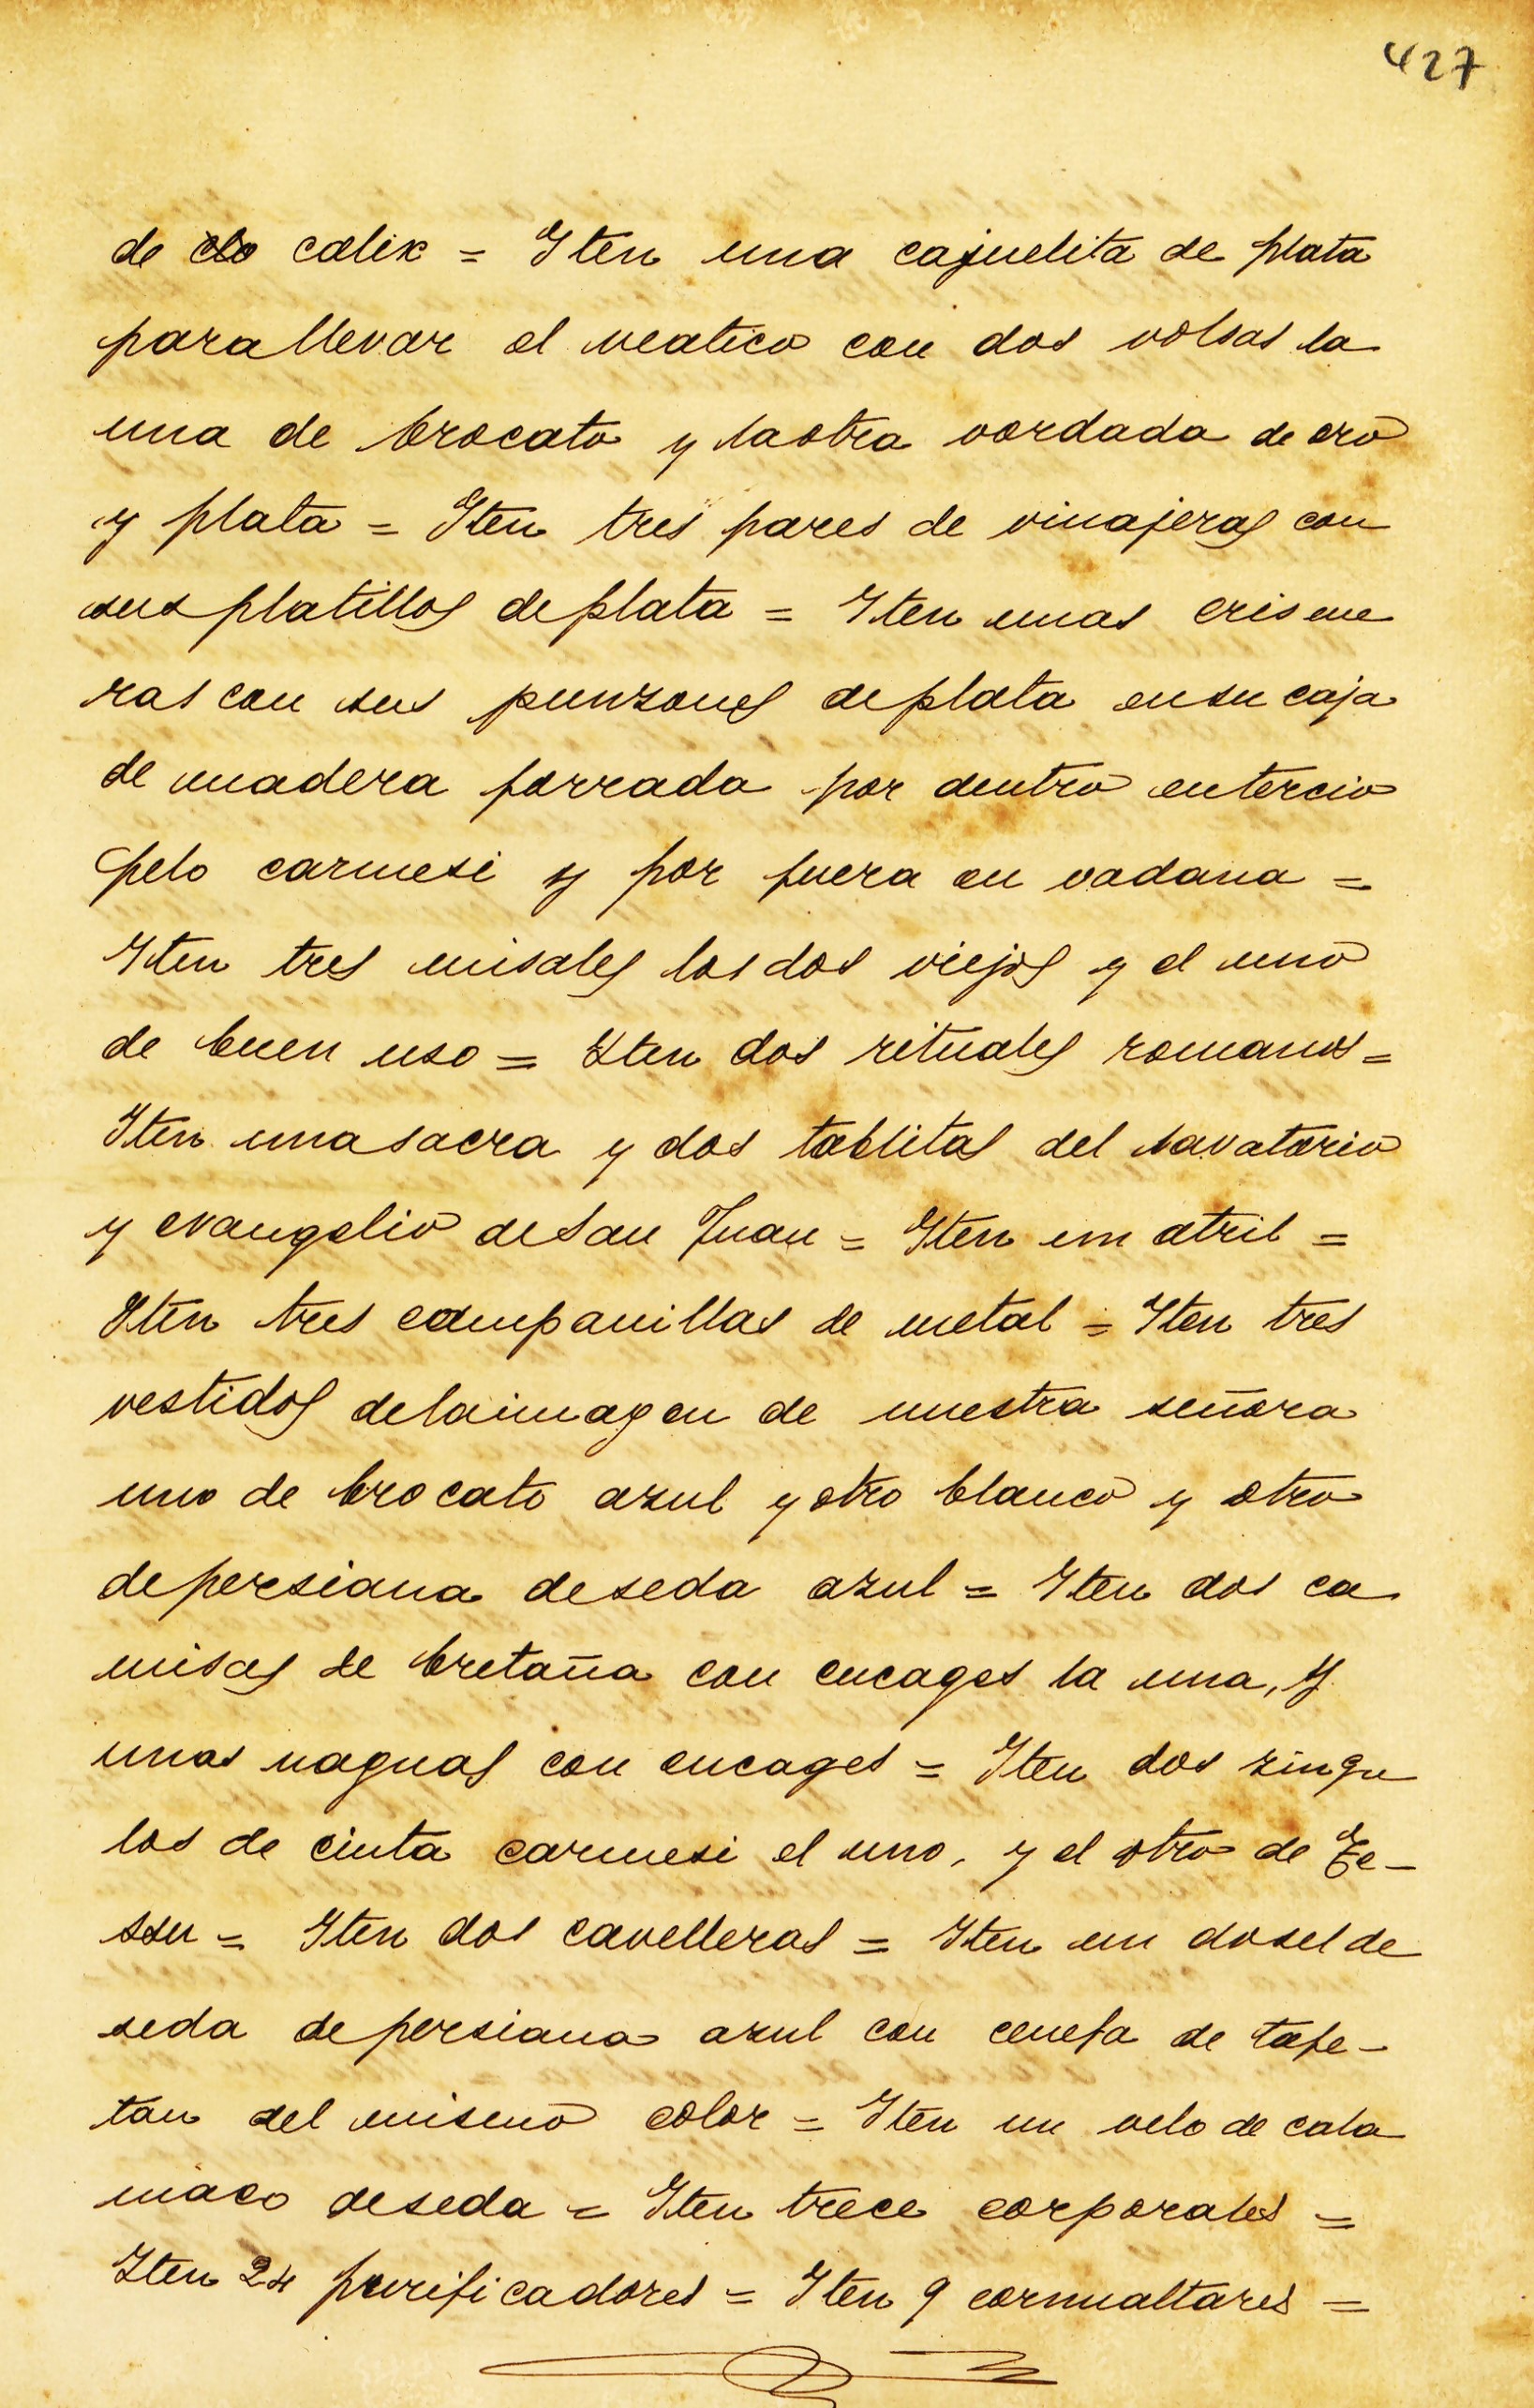 427
de clo calix = Iten una cajuelita de plata
para llevar el veatico con dos volsas la
una de brocato y la otra vordada de oro
y plata = Iten tres pares de vinajeras con
sus platillos de plata = Iten unas crisme
ras con sus punzones de plata en su caja
de madera forrada por dentro en tercio
pelo carmesi y por fuera en vadana =
Iten tres misales los dos viejos y el uno
de buen uso = Iten dos rituales romanos =
Iten una sacra y dos tablitas del lavatorio
y evangelio de San Juan = Iten un atril =
Iten tres campanillas de metal = Iten tres
vestidos de la imagen de nuestra señora
uno de brocato azul y otro blanco y otro
de persiana de seda azul = Iten dos ca
misas de bretaña con encages la una, y
unas naguas con encages = Iten dos zingu
los de cinta carmesi el uno, y el otro de Te-
ssu = Iten dos cavelleras = Iten un dosel de
seda de persiana azul con cenefa de tafe-
tan del mismo color = Iten un velo de cala
maco de seda = Iten trece corporales =
Iten 24 purificadores = Iten 9 cornualtares =